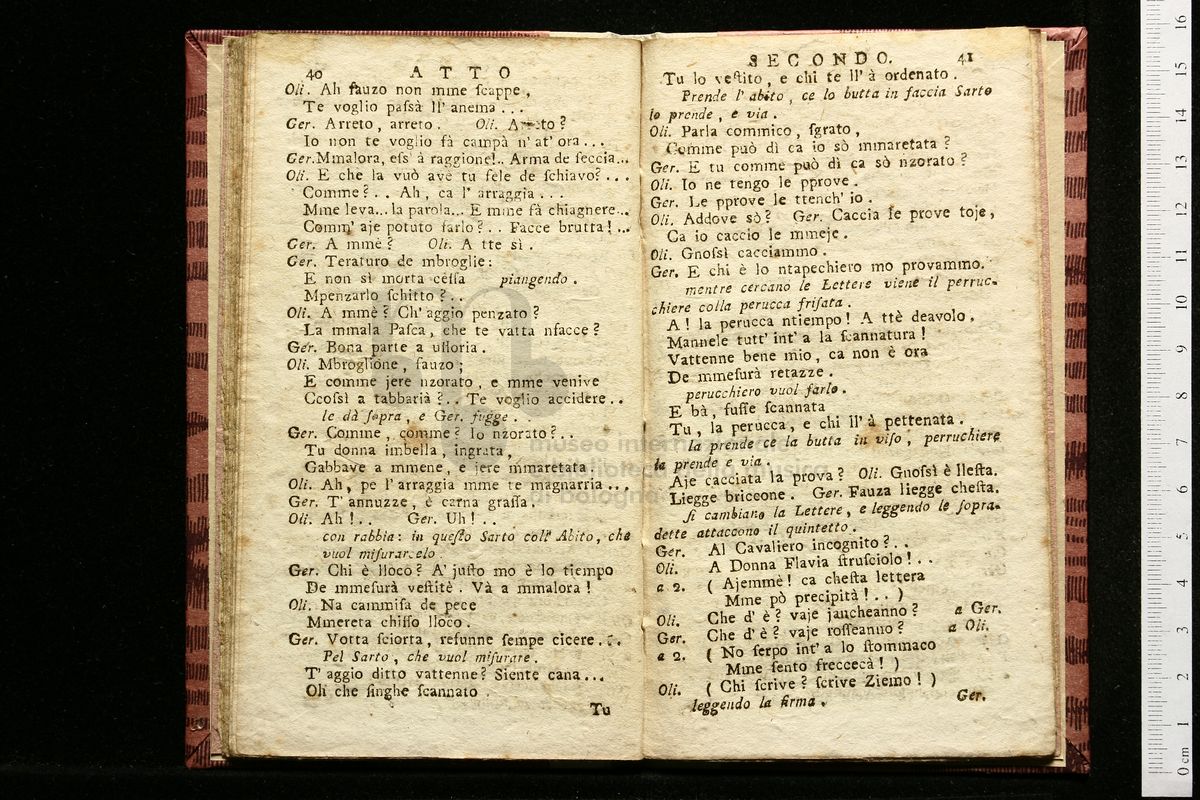 40 ATTO
Oli. Ah fauzo non mme ſcappe,
Te voglio paſsà ll' anema...
Ger. Arreto, arreto. Oli. Arreto?
Io non te voglio fà campà n' at' ora...
Ger. Mmalora, eſs' à raggione!.. Arma de feccia...
Oli. E che la vuò avè tu fele de ſchiavo?...
Comme?.. Ah, ca l' arraggia...
Mme leva... la parola... E mme fà chiagnere...
Comm' aje potuto farlo?.. Facce brutta!...
Ger. A mmè? Oli. A tte sì.
Ger. Teraturo de mbroglie:
E non sì morta ceſſa piangendo.
Mpenzarlo ſchitto?..
Oli. A mmè? Ch' aggio penzato?
La mmala Paſca, che te vatta nfacce?
Ger. Bona parte a ulloria.
Oli. Mbroglione, fauzo;
E comme jere nzorato, e mme venive
Ccoſsì a tabbarià?.. Te voglio accidere..
le dà ſopra, e Ger. fugge.
Ger. Comme, comme? Io nzorato?..
Tu donna imbella, ingrata,
Gabbave a mmene, e jere mmaretata.
Oli. Ah, pe l' arraggia mme te magnarria...
Ger. T' annuzze, è carna graſſa.
Oli. Ah!.. Ger. Uh!..
con rabbia: in queſto Sarto coll' Abito, che
vuol miſurarcelo.
Ger. Chi è lloco? A' juſto mo è lo tiempo
De mmeſurà veſtitè. Và a mmalora!
Oli. Na cammiſa de pece
Mmereta chiſſo lloco.
Ger. Votta ſciorta, reſunne ſempe cicere...
Pel Sarto, che vuol miſurare.
T' aggio ditto vattenne? Siente cana...
Oh che ſinghe ſcannato.
Tu
SECONDO. 41
Tu lo veſtito, e chi te ll' à ordenato.
Prende l' abito, ce lo butta in faccia Sarto
lo prende, e via.
Oli. Parla commico, ſgrato,
Comme può dì ca io sò mmaretata?
Ger. E tu comme può dì ca sò nzorato?
Oli. Io ne tengo le pprove.
Ger. Le pprove le ttench' io.
Oli. Addove sò? Ger. Caccia le prove toje,
Ca io caccio le mmeje.
Oli. Gnoſsì cacciammo.
Ger. E chi è lo ntapechiero mo provammo.
mentre cercano le Lettere viene il perruc-
chiere colla perucca friſata.
A! la perucca ntiempo! A ttè deavolo,
Mannele tutt' int' a la ſcannatura!
Vattenne bene mio, ca non è ora
De mmeſurà retazze.
perucchiero vuol farlo.
E bà, fuſſe ſcannata
Tu, la perucca, e chi ll' à pettenata.
la prende ce la butta in viſo, perruchiere
la prende e via.
Aje cacciata la prova? Oli. Gnoſsì è lleſta.
Liegge briccone. Ger. Fauza liegge cheſta.
ſi cambiano la Lettere, e leggendo le ſopra-
dette attaccono il quintetto.
Ger. Al Cavaliero incognito?..
Oli. A Donna Flavia ſtruſciolo!..
a 2. ( Ajemmè! ca cheſta lettera
Mme pò precipità!.. )
Oli. Che d' è? vaje jancheanno? a Ger.
Ger. Che d' è? vaje roſſeanno? a Oli.
a 2. ( No ſerpo int' a lo ſtommaco
Mme ſento freccecà! )
Oli. ( Chi ſcrive? ſcrive Ziemo! )
leggendo la firma.
Ger.
museo internazionale
biblioteca della musica
di bologna
0 cm 1 2 3 4 5 6 7 8 9 10 11 12 13 14 15 16